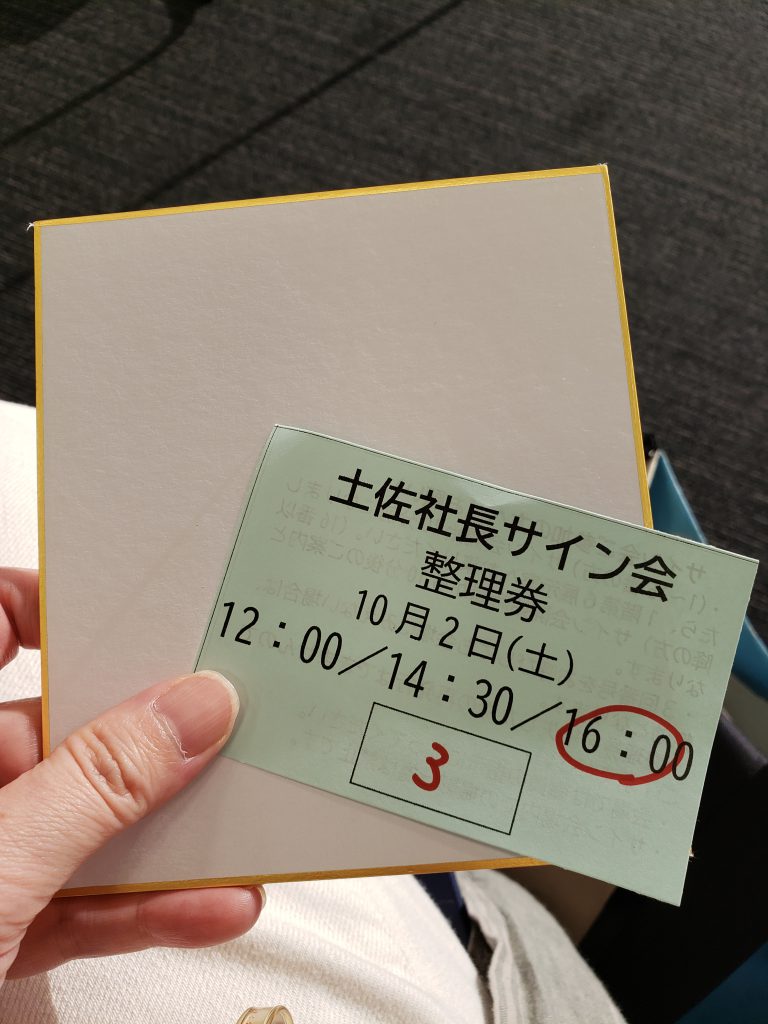 土佐社長サイン会
整理券
10月2日(土)
12:00／14:30／16:00
3